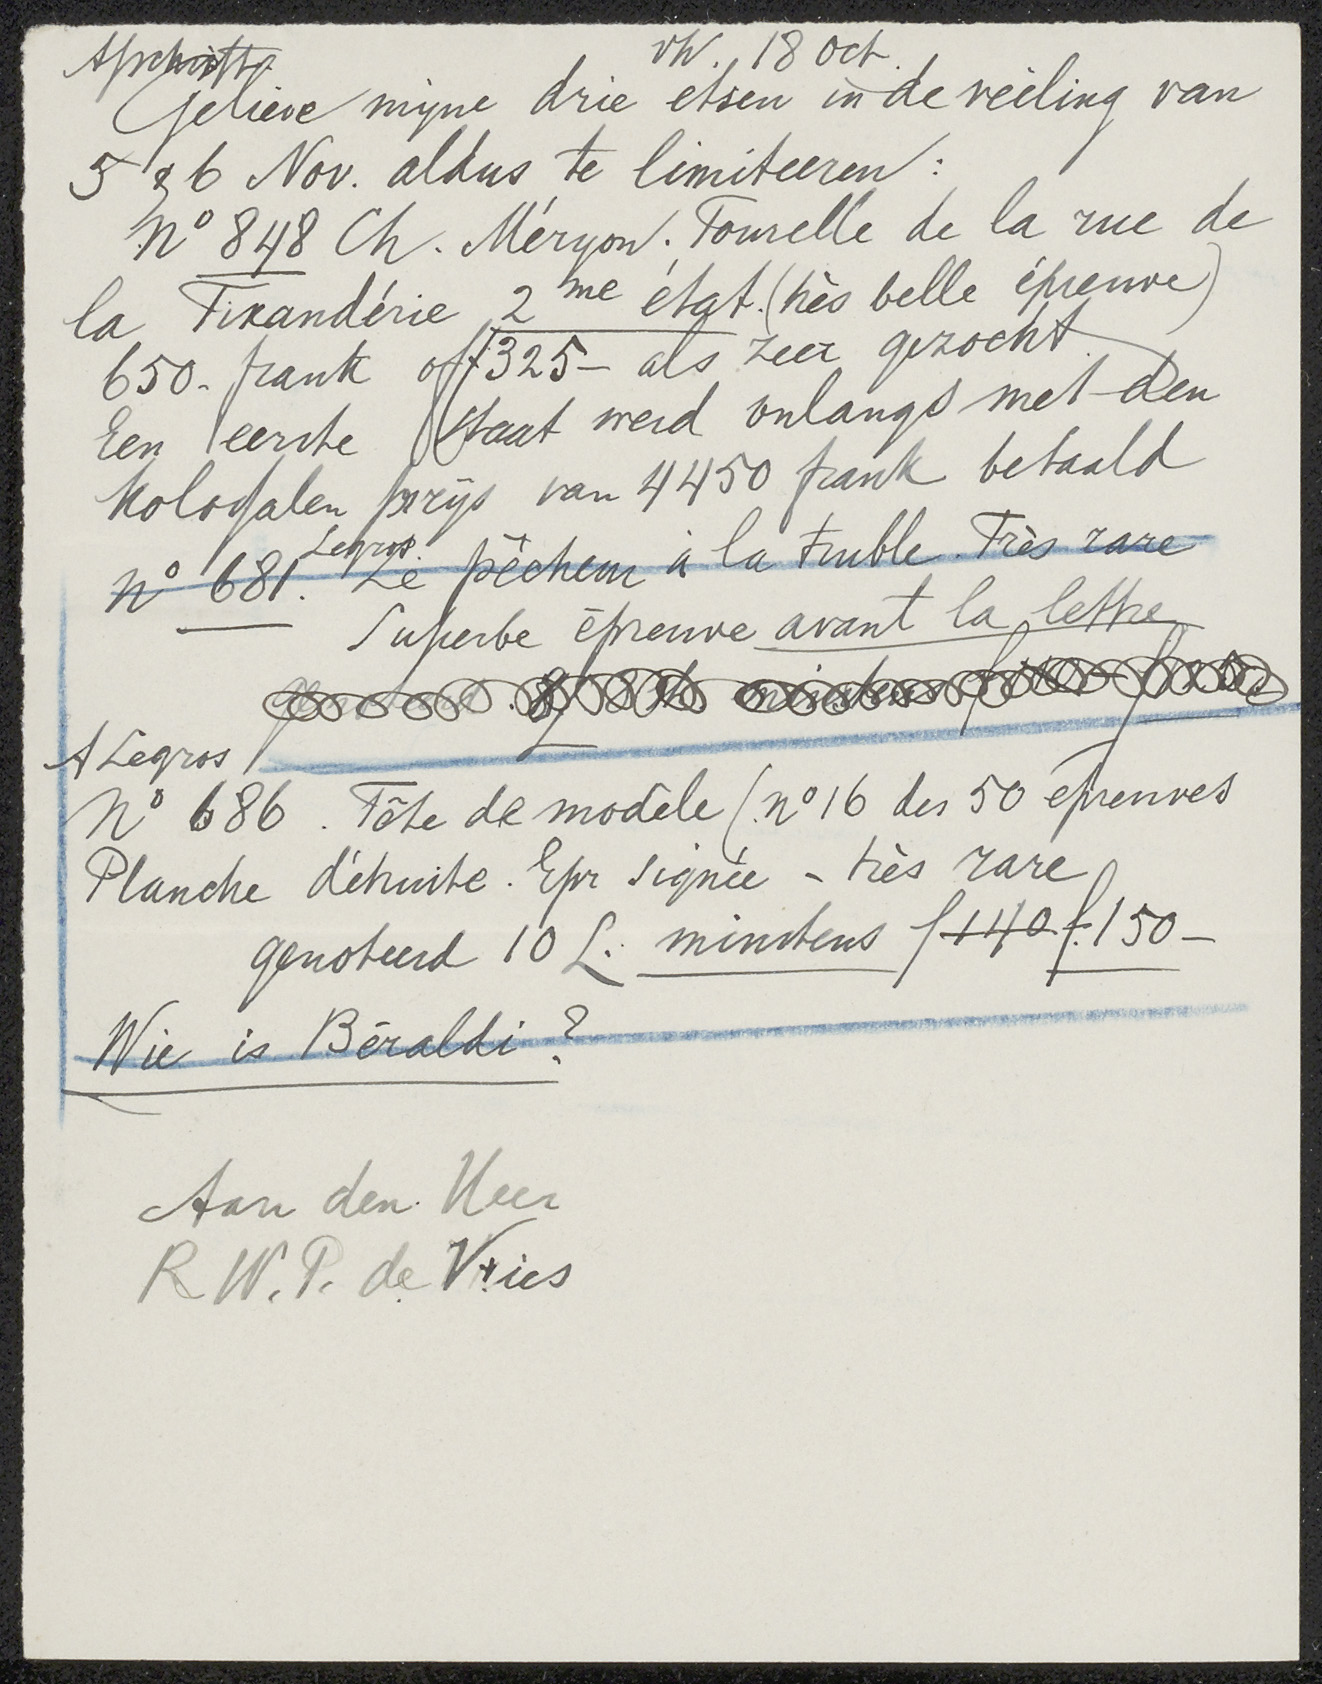 Afschrift vh. 18 oct.
Gelieve mijne drie etsen in de veiling van
5 & 6 Nov. aldus te limiteeren:
No 848 Ch. Méryon. Tourelle de la rue de
la Tixandérie 2me état. (très belle épreuve)
650.- frank of f 325- als zeer gezocht
Een eerste staat werd onlangs met den
kolossalen prijs van 4450 frank betaald
Legros.
no 681. Le pêcheur à la truble. Très rare
Superbe épreuve avant la lettre
A Legros
No 686. Tête de modèle (no 16 des 50 épreuves
Planche détruite. Epr signée - très rare
genoteerd 10 £. minstens f 140 f. 150-
Wie is Béraldi?
Aan den Heer
R. W. P. de Vries